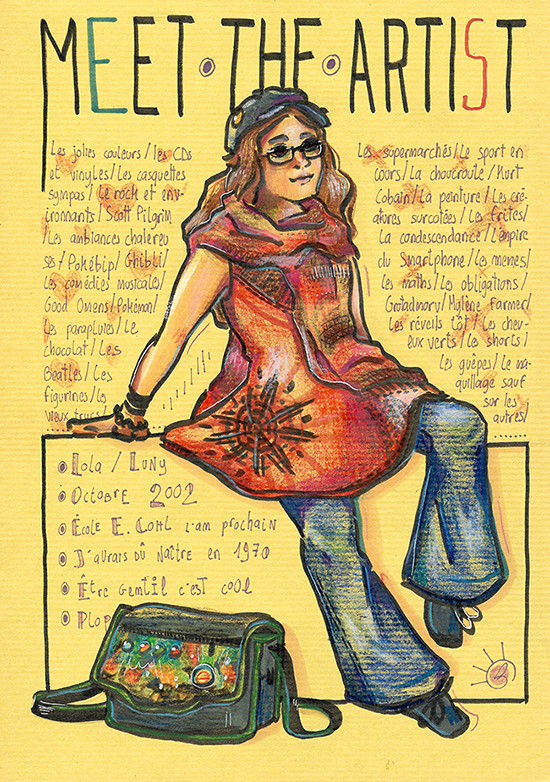 MEET·THE·ARTIST
Les jolies couleurs / les CDs
et vinyles / Les casquettes
sympas / Le rock et env-
ironnants / Scott Pilgrim
/ Les ambiances chaleureu
ses / Poképip / Ghibli /
Les comédies musicales /
Good Omens / Pokémon /
Les parapluies / Le
chocolat / Les
Beatles / Les
figurines / Les
vieux trucs /
Les supermarchés / Le sport en
cours / La choucroute / Kurt
Cobain / La peinture / Les cré-
atures surcotées / Les frites /
La condescendance / L'empire
du Smartphone / Les memes /
Les maths / Les obligations /
Mylène Farmer /
Les réveils tôt / Les chev-
eux verts / Le shorts /
Les guêpes / Le ma-
quillage sauf
sur les
autres /
Lola / Luny
Octobre 2002
École E. Cohl l'am prochain
J'aurais dû naître en 1970
Être gentil c'est cool
Plop